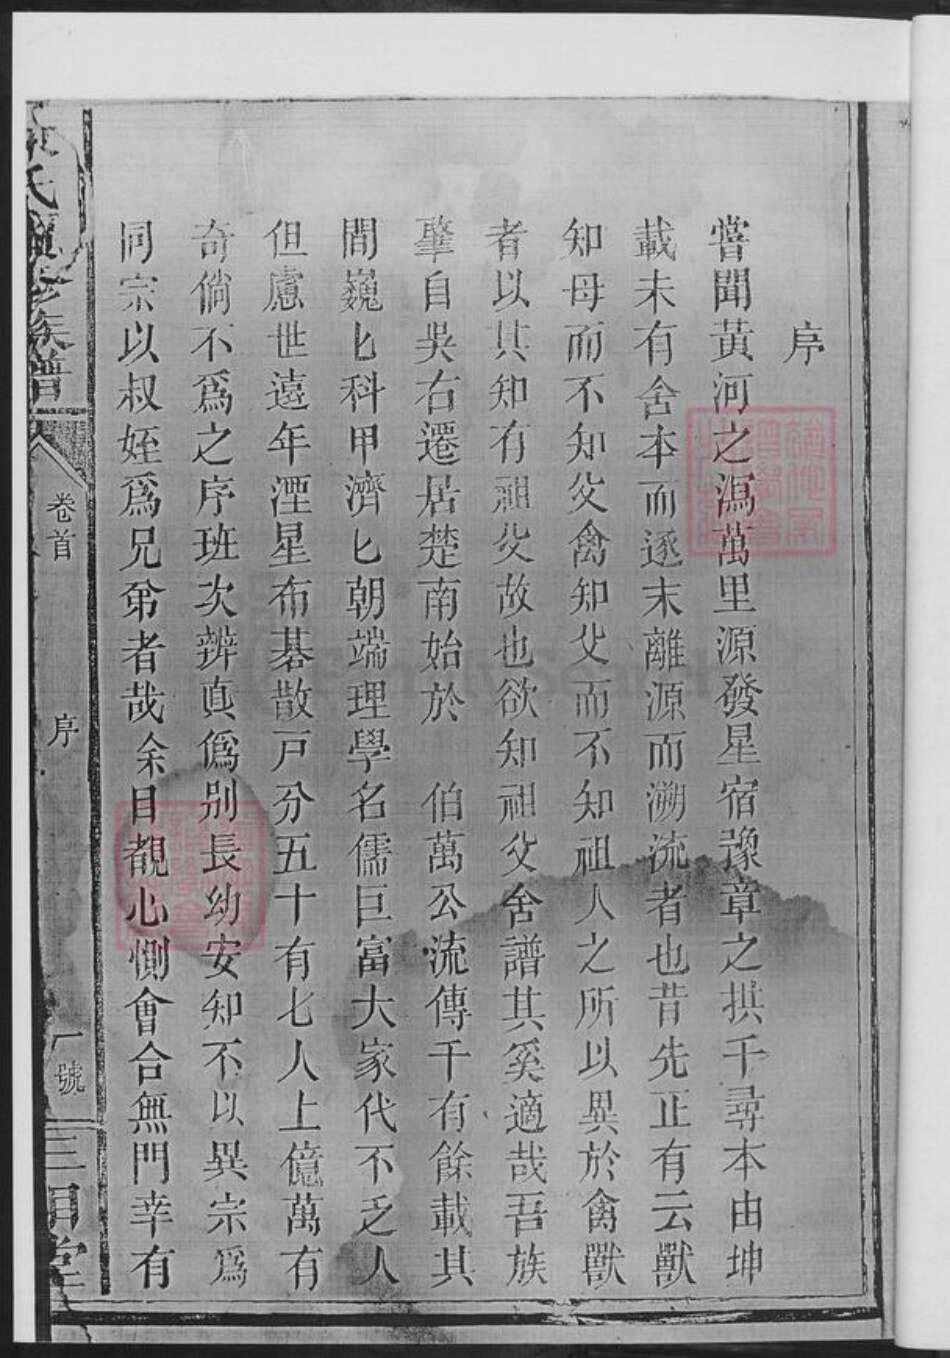 序
嘗聞黃河之瀉萬里源發星宿豫章之拱千尋本由坤
載未有舍本而逐末離源而溯流者也昔先正有云獸
知母而不知父禽知父而不知祖人之所以異於禽獸
者以其知有祖父故也欲知祖父舍譜其奚適哉吾族
肇自吳右遷居楚南始於 伯萬公流傳千有餘載其
間巍匕科甲濟匕朝端理學名儒巨富大家代不乏人
但慮世遠年湮星布碁散戸分五十有七人上億萬有
奇倘不爲之序班次辨真僞别長幼安知不以異宗爲
同宗以叔姪爲兄弟者哉余目覩心惻會合無門幸有
氏續修族譜
卷首
序
號
三
堂